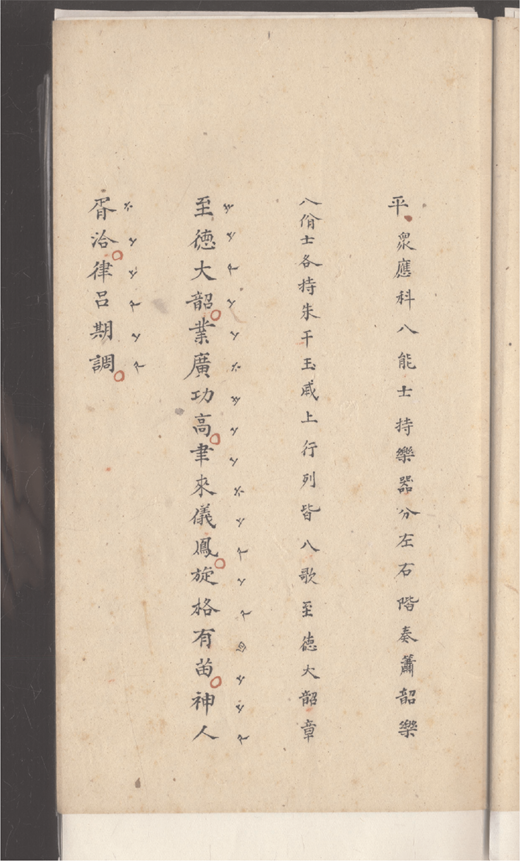 平 衆應科八能士持樂器分左右階奏蕭韶樂
八佾士各持朱干玉戚上行列皆八歌至德大韶章
至德大韶業廣功高聿來儀鳳旋格有苗神人
胥洽律呂期調